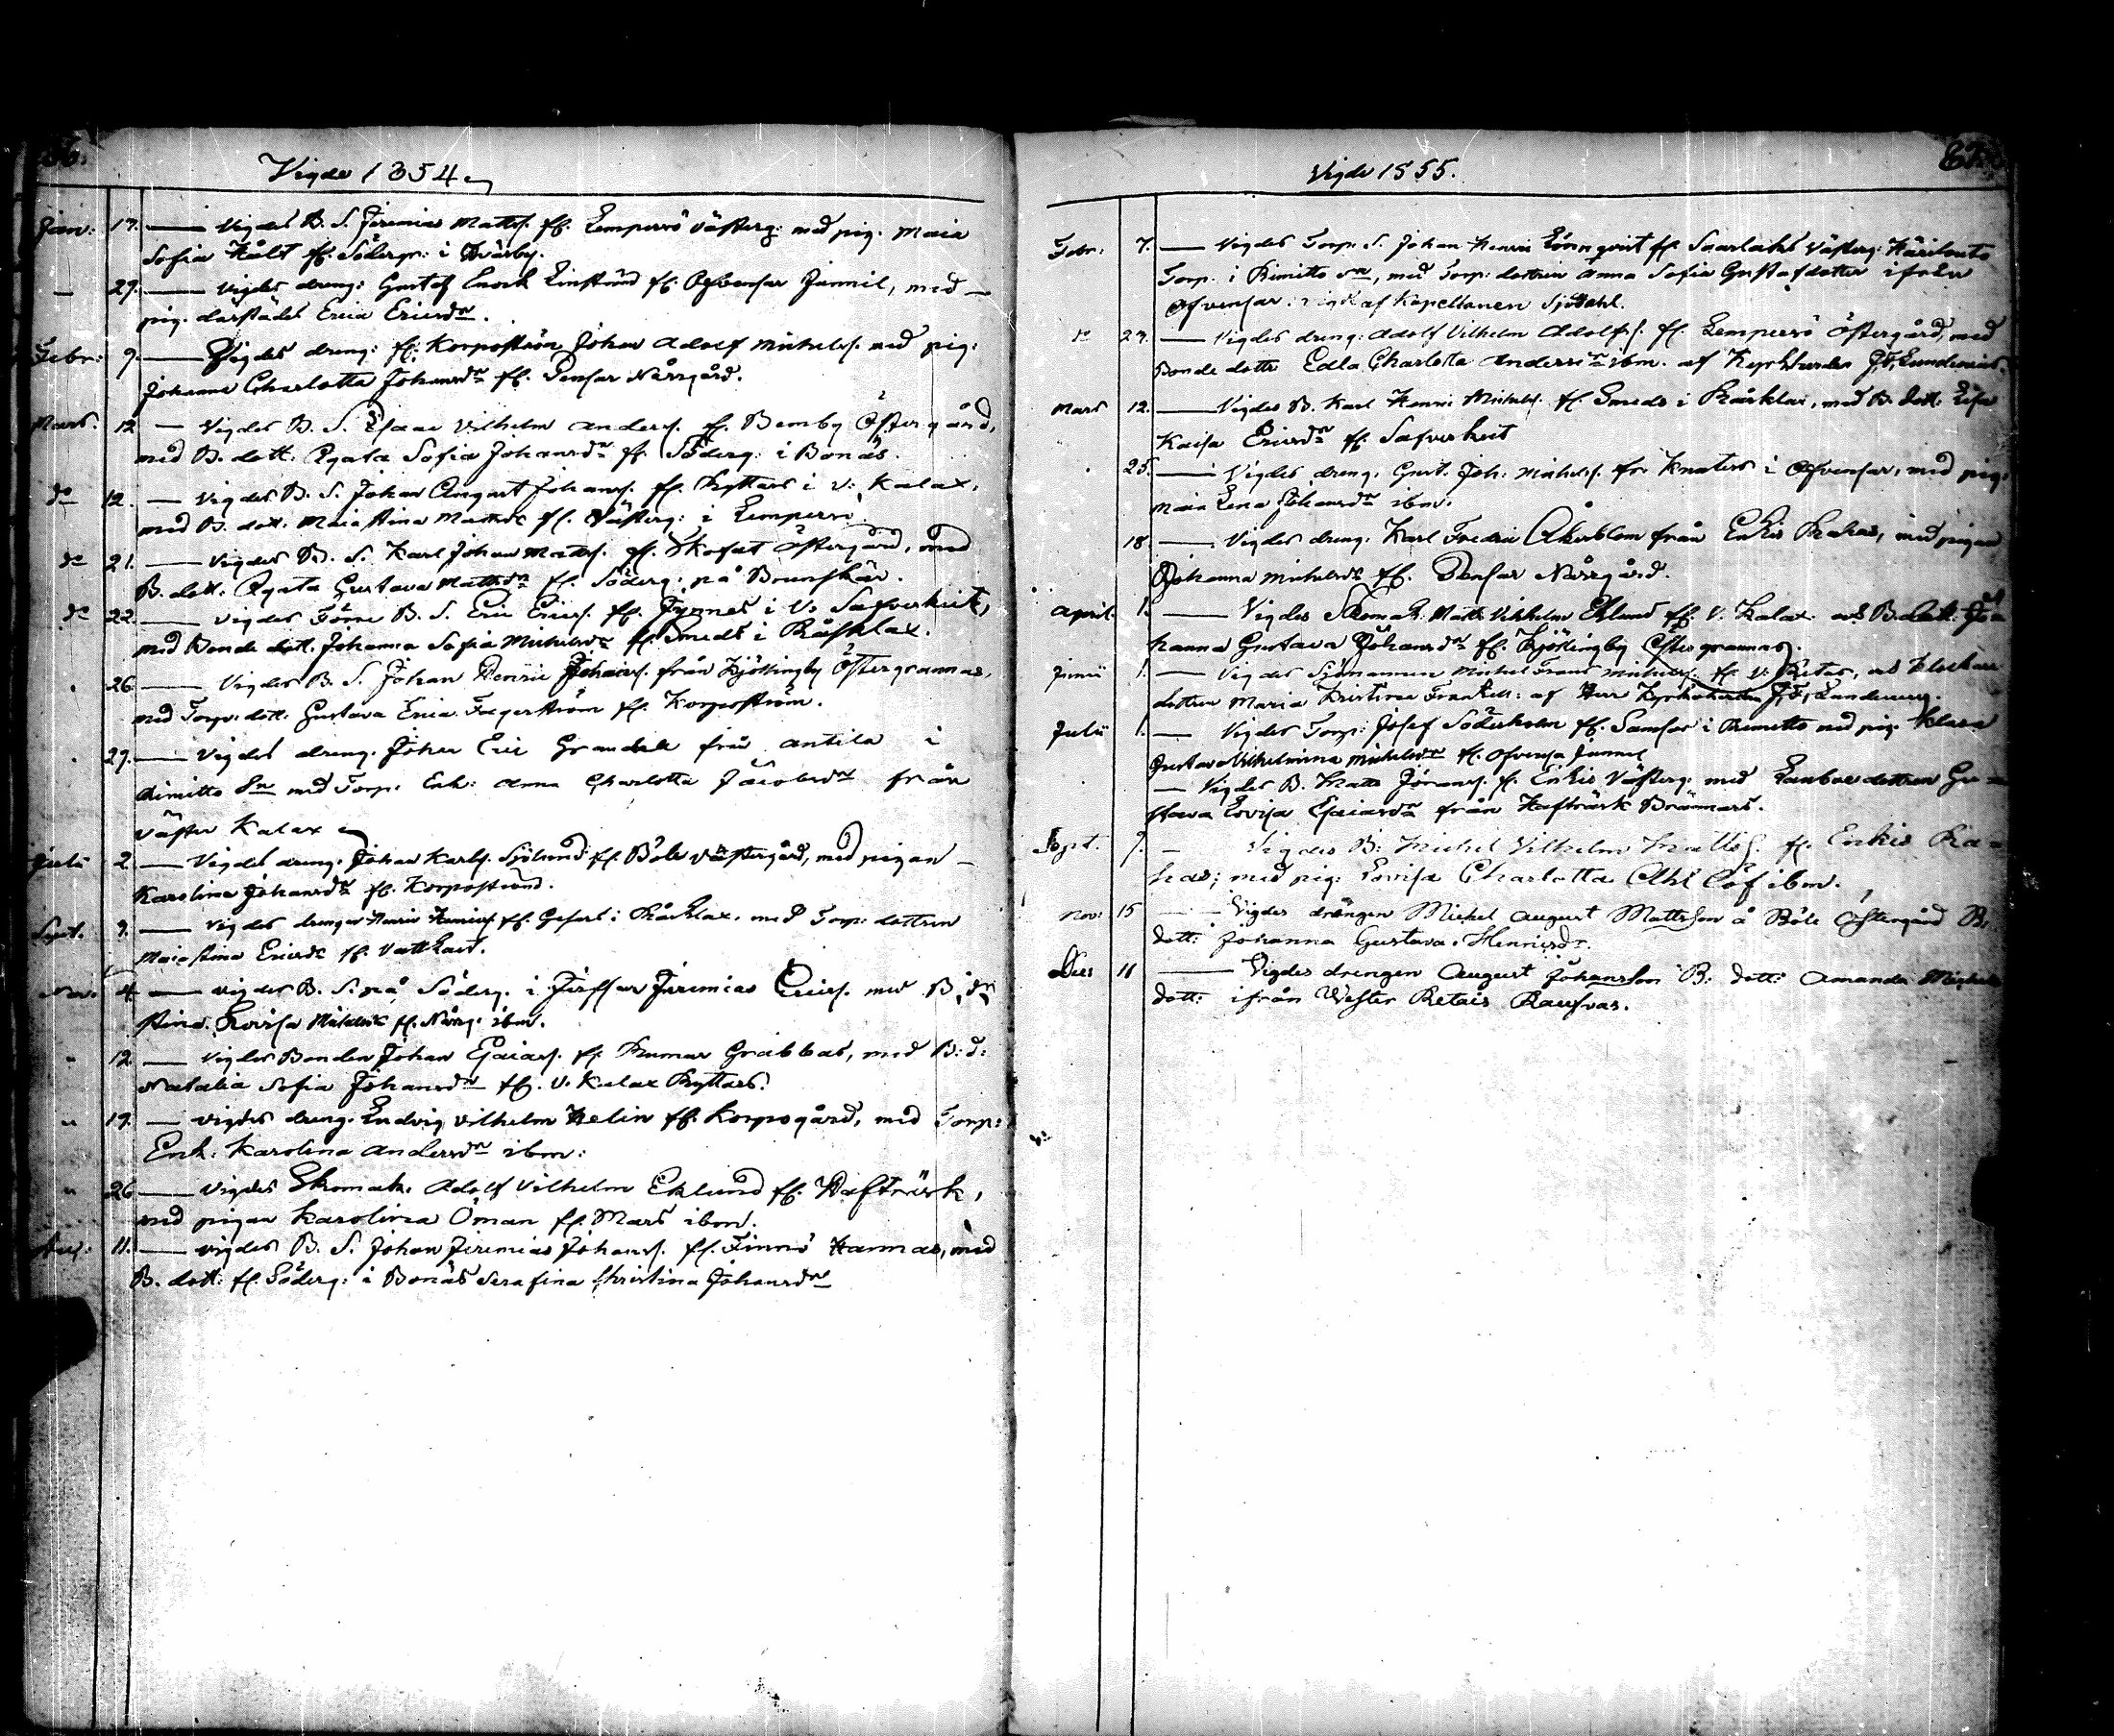 Vigde 1854.
Jan: 17. — Vigdes B. S. Jeremias Matts. fr. Lemperrö Västerg: med pig. Maia
Sofia Hält fr. Södergr: i Svärby.
— 29. — Vigdes dreng: Gustaf Enock Linstrand fr. Ofvensar Jumnil, med
pig. därstädes Erica Ericsdr.
Febr: 9. — Vigdes dreng: fr. Korpoström Johan Adolf Mickels. med pig:
Johanna Charlotta Johansdr fr. Pensar Norrgård.
Mars. 12 — Vigdes B. S. Isaac Vilhelm Anders. fr. Bemby Östergård,
med B. dott. Agata Sofia Johansdr fr Söderg: i Bonäs.
do 12. — Vigdes B. S. Johan August Johans. fr. Ryttars i V. Kalax,
med B. dott. Maia Stina Mattsdr fr. Västerg: i Lemperrö
do 21. — Vigdes B. S. Karl Johan Matts. fr. Skofat Östergård, med
B. dott. Agata Gustava Mattsdr fr. Söderg: på Brunskär.
do 22. — Vigdes Förre B. S. Eric Erics. fr. Jynnes i V.
med Bonde dott. Johanna Sofia Mickelsdr fr. Smeds i Råsklax.
26 — Vigdes B. S. Johan Henric Johans. från Kjöttingby Östergrannas,
med Torp. dott. Gustava Erica Fagerström fr. Korpoström.
29. — Vigdes dreng. Johan Eric Grandell från Antila i
Rimitto Sn med Torp. Enk: Anna Charlotta Jacobsdr från
Väster Kalax
Julii 2. — Vigdes dreng. Johan Karls. Sjölund fr. Böle Västergård, med pigan
Karolina Johansdr fr. Korpostrand.
Sept. 3. — Vigdes drengen Henric Henrics fr. i Råsklax, med Torp: dottren
Maia Stina Ericsdr fr. Vattkast.
Nov. 4 — Vigdes B. S. på Söderg. i Jeremias Erics. med B. dr
Stina Lovisa fr. Norrg. ibm.
" 12 — Vigdes Bonden Johan Esaias. fr. Rumar Grabbas, med B: d:
Natalia Sofia Johansdr fr. V. Kalax Ryttars.
" 19. — Vigdes dreng. Ludvig Vilhelm Helin fr. Korpogård, med Torp:
Enk: Karolina Andersdr ibm:
" 26 — Vigdes Skomak. Adolf Vilhelm Eklund fr. Hafträsk,
med pigan Karolina Öman fr. Mars ibm.
11. — Vigdes B. S. Johan Jeremias Johans. fr. Finnö Hannas, med
B. dott: fr. Söderg: i Bonäs Serafina Christina Johansdr
Vigde 1855.
Febr: 7. — Vigdes Torp. S. Johan Henric Lönnqvist fr. Saarlaks Västerg.
Torp. i Rimitto Sn, med Torp: dottren Anna Sofia Gustafsdotter ifrån
Ofvensar: vigd af Kapellanen Sjödahl.
do 27. — Vigdes dreng: Adolf Vilhelm Adolfs. fr. Lemperrö Östergård, med
Bonde dottr Edla Charlotta Andersdr ibm. af Kyrkherden J. F. Lundenius.
Mars 12. — Vigdes B. Karl Henric Mickels. fr. Smeds i Råsklax, med B. dott. Lisa
Kaisa Ericsdr fr.
25. — Vigdes dreng. Gust. Joh: Mickels. fr. Knaters i Ofvensar, med pig:
Maia Lena Johansdr ibm.
18. — Vigdes dreng. Karl Fredric Åkerblom från Enkis Rakas, med pigan
Johanna Mickelsdr fr. Pensar Norrgård.
April 1. — Vigdes Skomak. Matts Vilhelm Eklund fr. V. Kalax och B. dott. Jo-
hanna Gustava Johansdr fr. Kjöttingby Östergrannas.
Junii 1. — Vigdes Sjömannen Mickel Frans Mickels. fr. V. Retais, och klockare
dottren Maria Kristina af Herr Kyrkoherden J. F. Lundenius.
Julii 1. — Vigdes Torp: Josef Söderholm fr. Samsar i Rimitto med pig. Klara
Gustava Vilhelmina Mickelsdr fr. Ofvensa Jumnil
— Vigdes B. Matts Görans. fr. Enkis Västerg: med Lanbos dottren Gu-
stava Lovisa Esaiasdr från Hafträsk Brännars.
Sept. 9. — Vigdes B: Mickel Vilhelm Matts S. fr. Enkis Ra-
kas; med pig: Lovisa Charlotta Ahl Löf ibm.
Nov: 15 — Vigdes drängen Mickel August Mattsson å Böle Östergård B.
dott: Johanna Gustava Henricsdr.
Dec 11 — Vigdes drengen August Johansson B: dott: Amanda Mickels
dott: ifrån Wester Retais Raufvas.